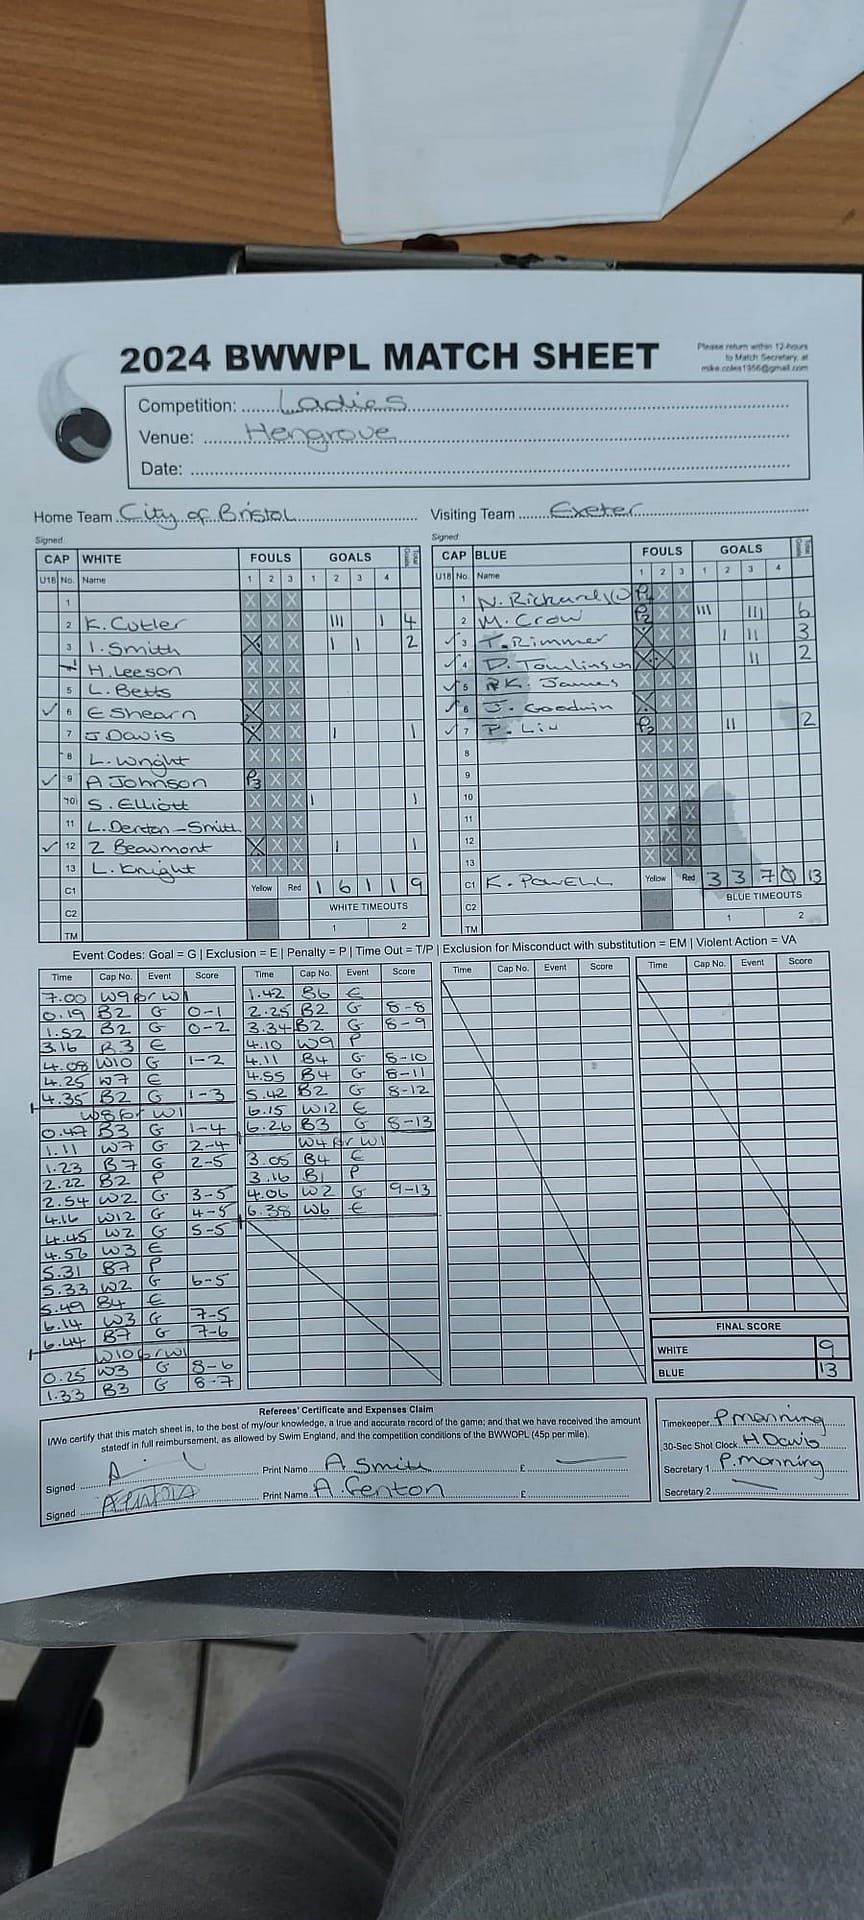 2024 BWWPL MATCH SHEET
Please return within 12-hours
to Match Secretary, at
mike.coles1956@gmail.com
Competition: Ladies
Venue: Hengrove
Date:
Home Team City of Bristol
Visiting Team Exeter
Signed
Signed
CAP WHITE FOULS GOALS Total Goals
U18 No. Name 1 2 3 1 2 3 4
1 X X X
2 K. Cutler X X X III I 4
3 I. Smith X X X I I 2
H. Leeson X X X
5 L. Betts X X X
✓ 6 E Shearn X X X
7 J. Davis X X X I 1
8 L. Wright X X X
✓ 9 A Johnson P3 X X
10 S. Elliott X X X I 1
11 L. Denton-Smith X X X
✓ 12 Z Beaumont X X X I 1
13 L. Knight X X X
C1 Yellow Red 1 6 1 1 9
C2 WHITE TIMEOUTS
TM 1 2
CAP BLUE FOULS GOALS Total Goals
U18 No. Name 1 2 3 1 2 3 4
1 N. X X
2 M. Crow P2 X X III III 6
✓ 3 T. Rimmer X X X I II 3
✓ 4 D. Tomlinson X X X II 2
✓ 5 K. James X X X
✓ 6 J. Goodwin X X X
✓ 7 P. Liu P2 X X II 2
8 X X X
9 X X X
10 X X X
11 X X X
12 X X X
13 X X X
C1 K. POWELL Yellow Red 3 3 7 0 13
C2 BLUE TIMEOUTS
TM 1 2
Event Codes: Goal = G | Exclusion = E | Penalty = P | Time Out = T/P | Exclusion for Misconduct with substitution = EM | Violent Action = VA
Time Cap No. Event Score
7.00 W9 for W1
0.19 B2 G 0-1
1.52 B2 G 0-2
3.16 B3 E
4.08 W10 G 1-2
4.25 W7 E
4.35 B2 G 1-3
W8 for W1
0.47 B3 G 1-4
1.11 W7 G 2-4
1.23 B7 G 2-5
2.22 B2 P
2.54 W2 G 3-5
4.16 W12 G 4-5
4.45 W2 G 5-5
4.56 W3 E
5.31 B7 P
5.33 W2 G 6-5
5.49 B4 E
6.14 W3 G 7-5
6.44 B7 G 7-6
W10 for W1
0.25 W3 G 8-6
1.33 B3 G 8-7
Time Cap No. Event Score
1.42 B6 E
2.25 B2 G 8-8
3.34 B2 G 8-9
4.10 W9 P
4.11 B4 G 8-10
4.55 B4 G 8-11
5.42 B2 G 8-12
6.15 W12 E
6.26 B3 G 8-13
W4 for W1
3.05 B4 E
3.16 B1 P
4.06 W2 G 9-13
6.38 W6 E
Time Cap No. Event Score
Time Cap No. Event Score
FINAL SCORE
WHITE 9
BLUE 13
Referees' Certificate and Expenses Claim
I/We certify that this match sheet is, to the best of my/our knowledge, a true and accurate record of the game; and that we have received the amount
stated in full reimbursement, as allowed by Swim England, and the competition conditions of the BWWOPL (45p per mile).
Signed Print Name A. Smith £
Signed Print Name A. Fenton £
Timekeeper P manning
30-Sec Shot Clock H Davis
Secretary 1 P. manning
Secretary 2